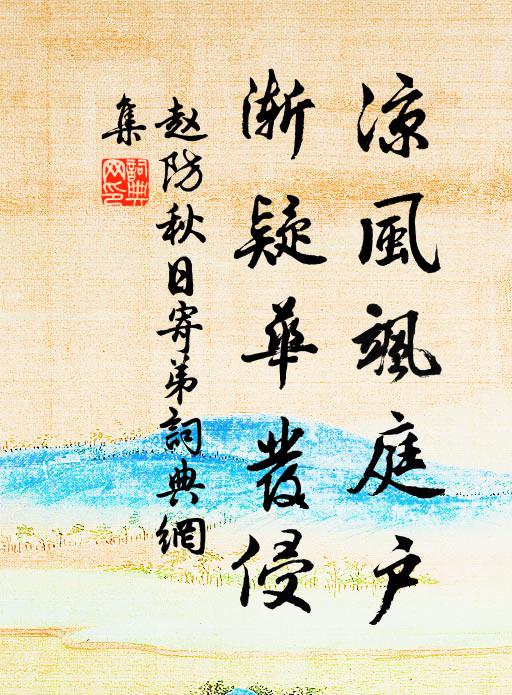 涼風颯庭户
漸疑華發侵
赵防秋日寄弟詞典網
集
詞典
网印